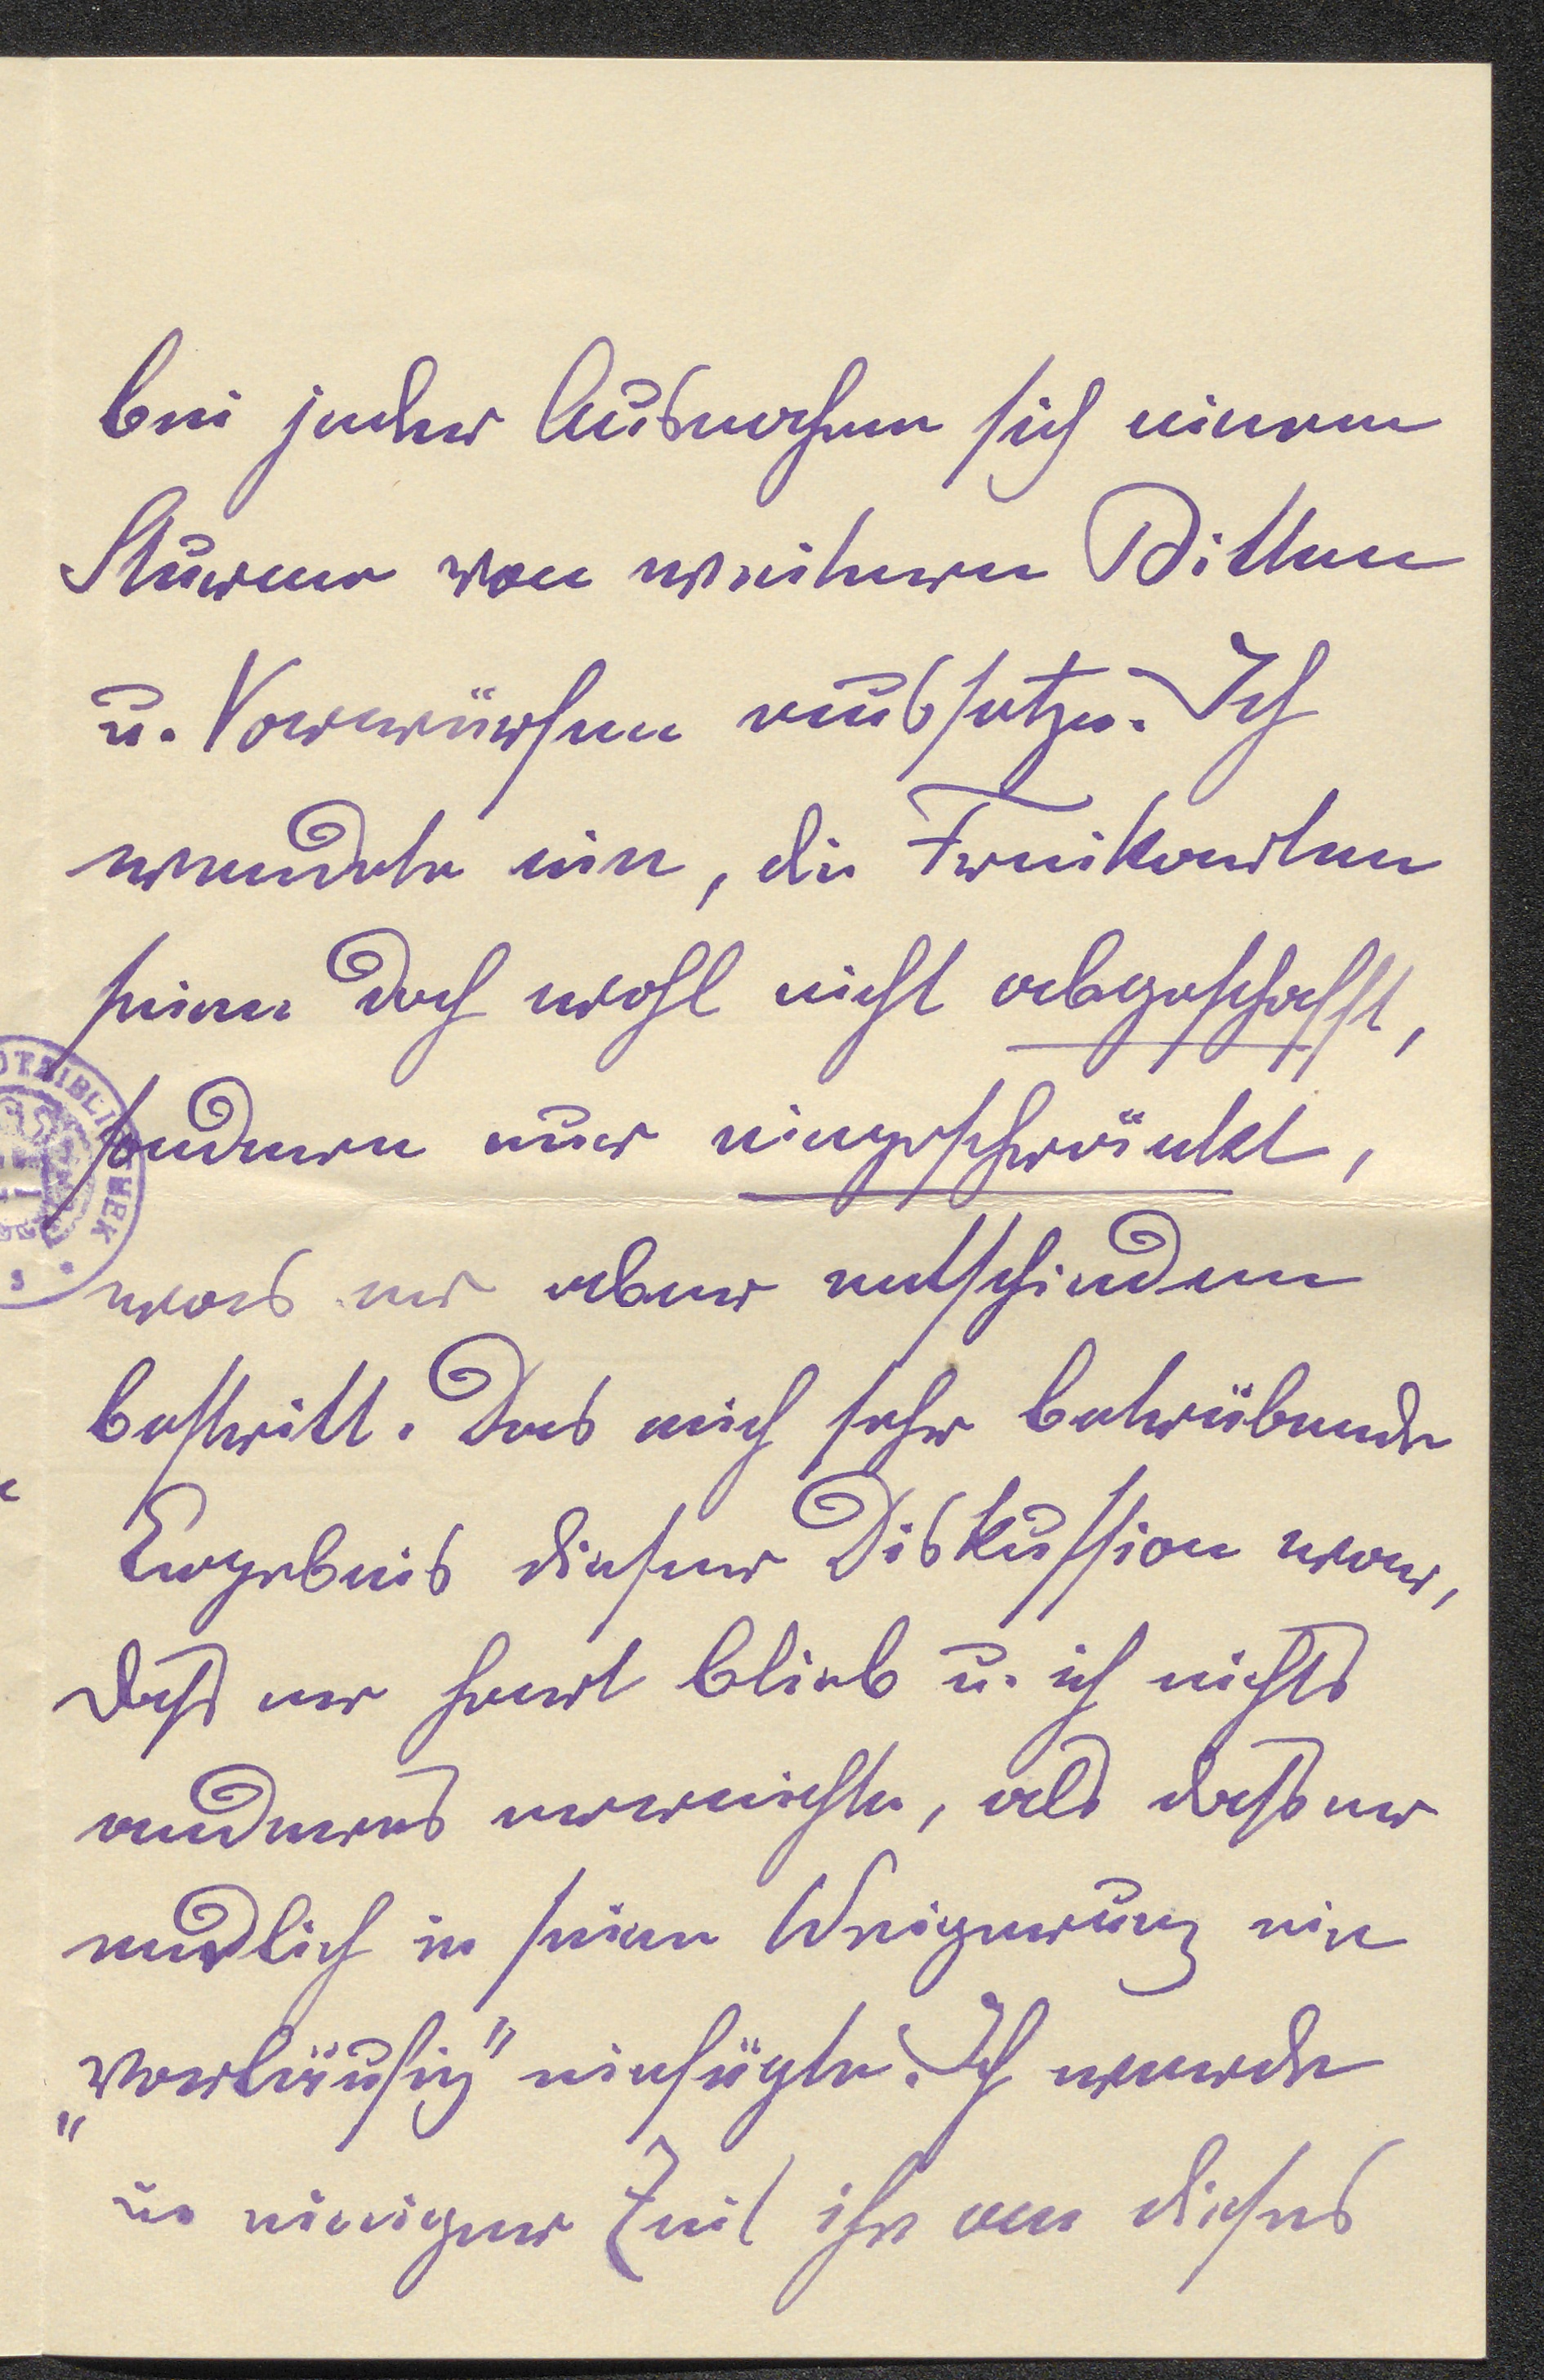 bei jeder Ausnahme sich einem
Sturme von weiteren Bitten
u. Vorwürfen aussetze. Ich
wendete ein, die Freikarten
seien doch wohl nicht abgeschafft,
sondern nur eingeschränkt,
was er aber entschieden
bestritt. Das mich sehr betrübende
Ergebnis dieser Diskussion war,
daß er hart blieb u. ich nichts
anderes erreichte, als daß er
endlich in seine Weigerung ein
„vorläufig“ einfügte. Ich werde
in einiger Zeit ihn an dieses